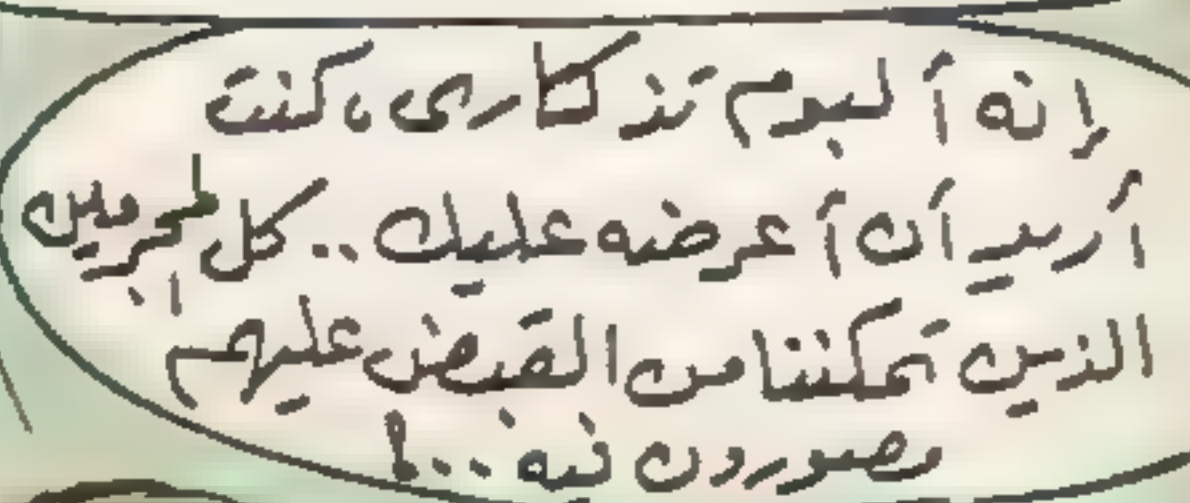 إنه ألبوم تذكارى، كنت
أريد أن أعرضه عليك .. كل المجرمين
الذين تمكننا من القبض عليهم
مصورون فيه ..!